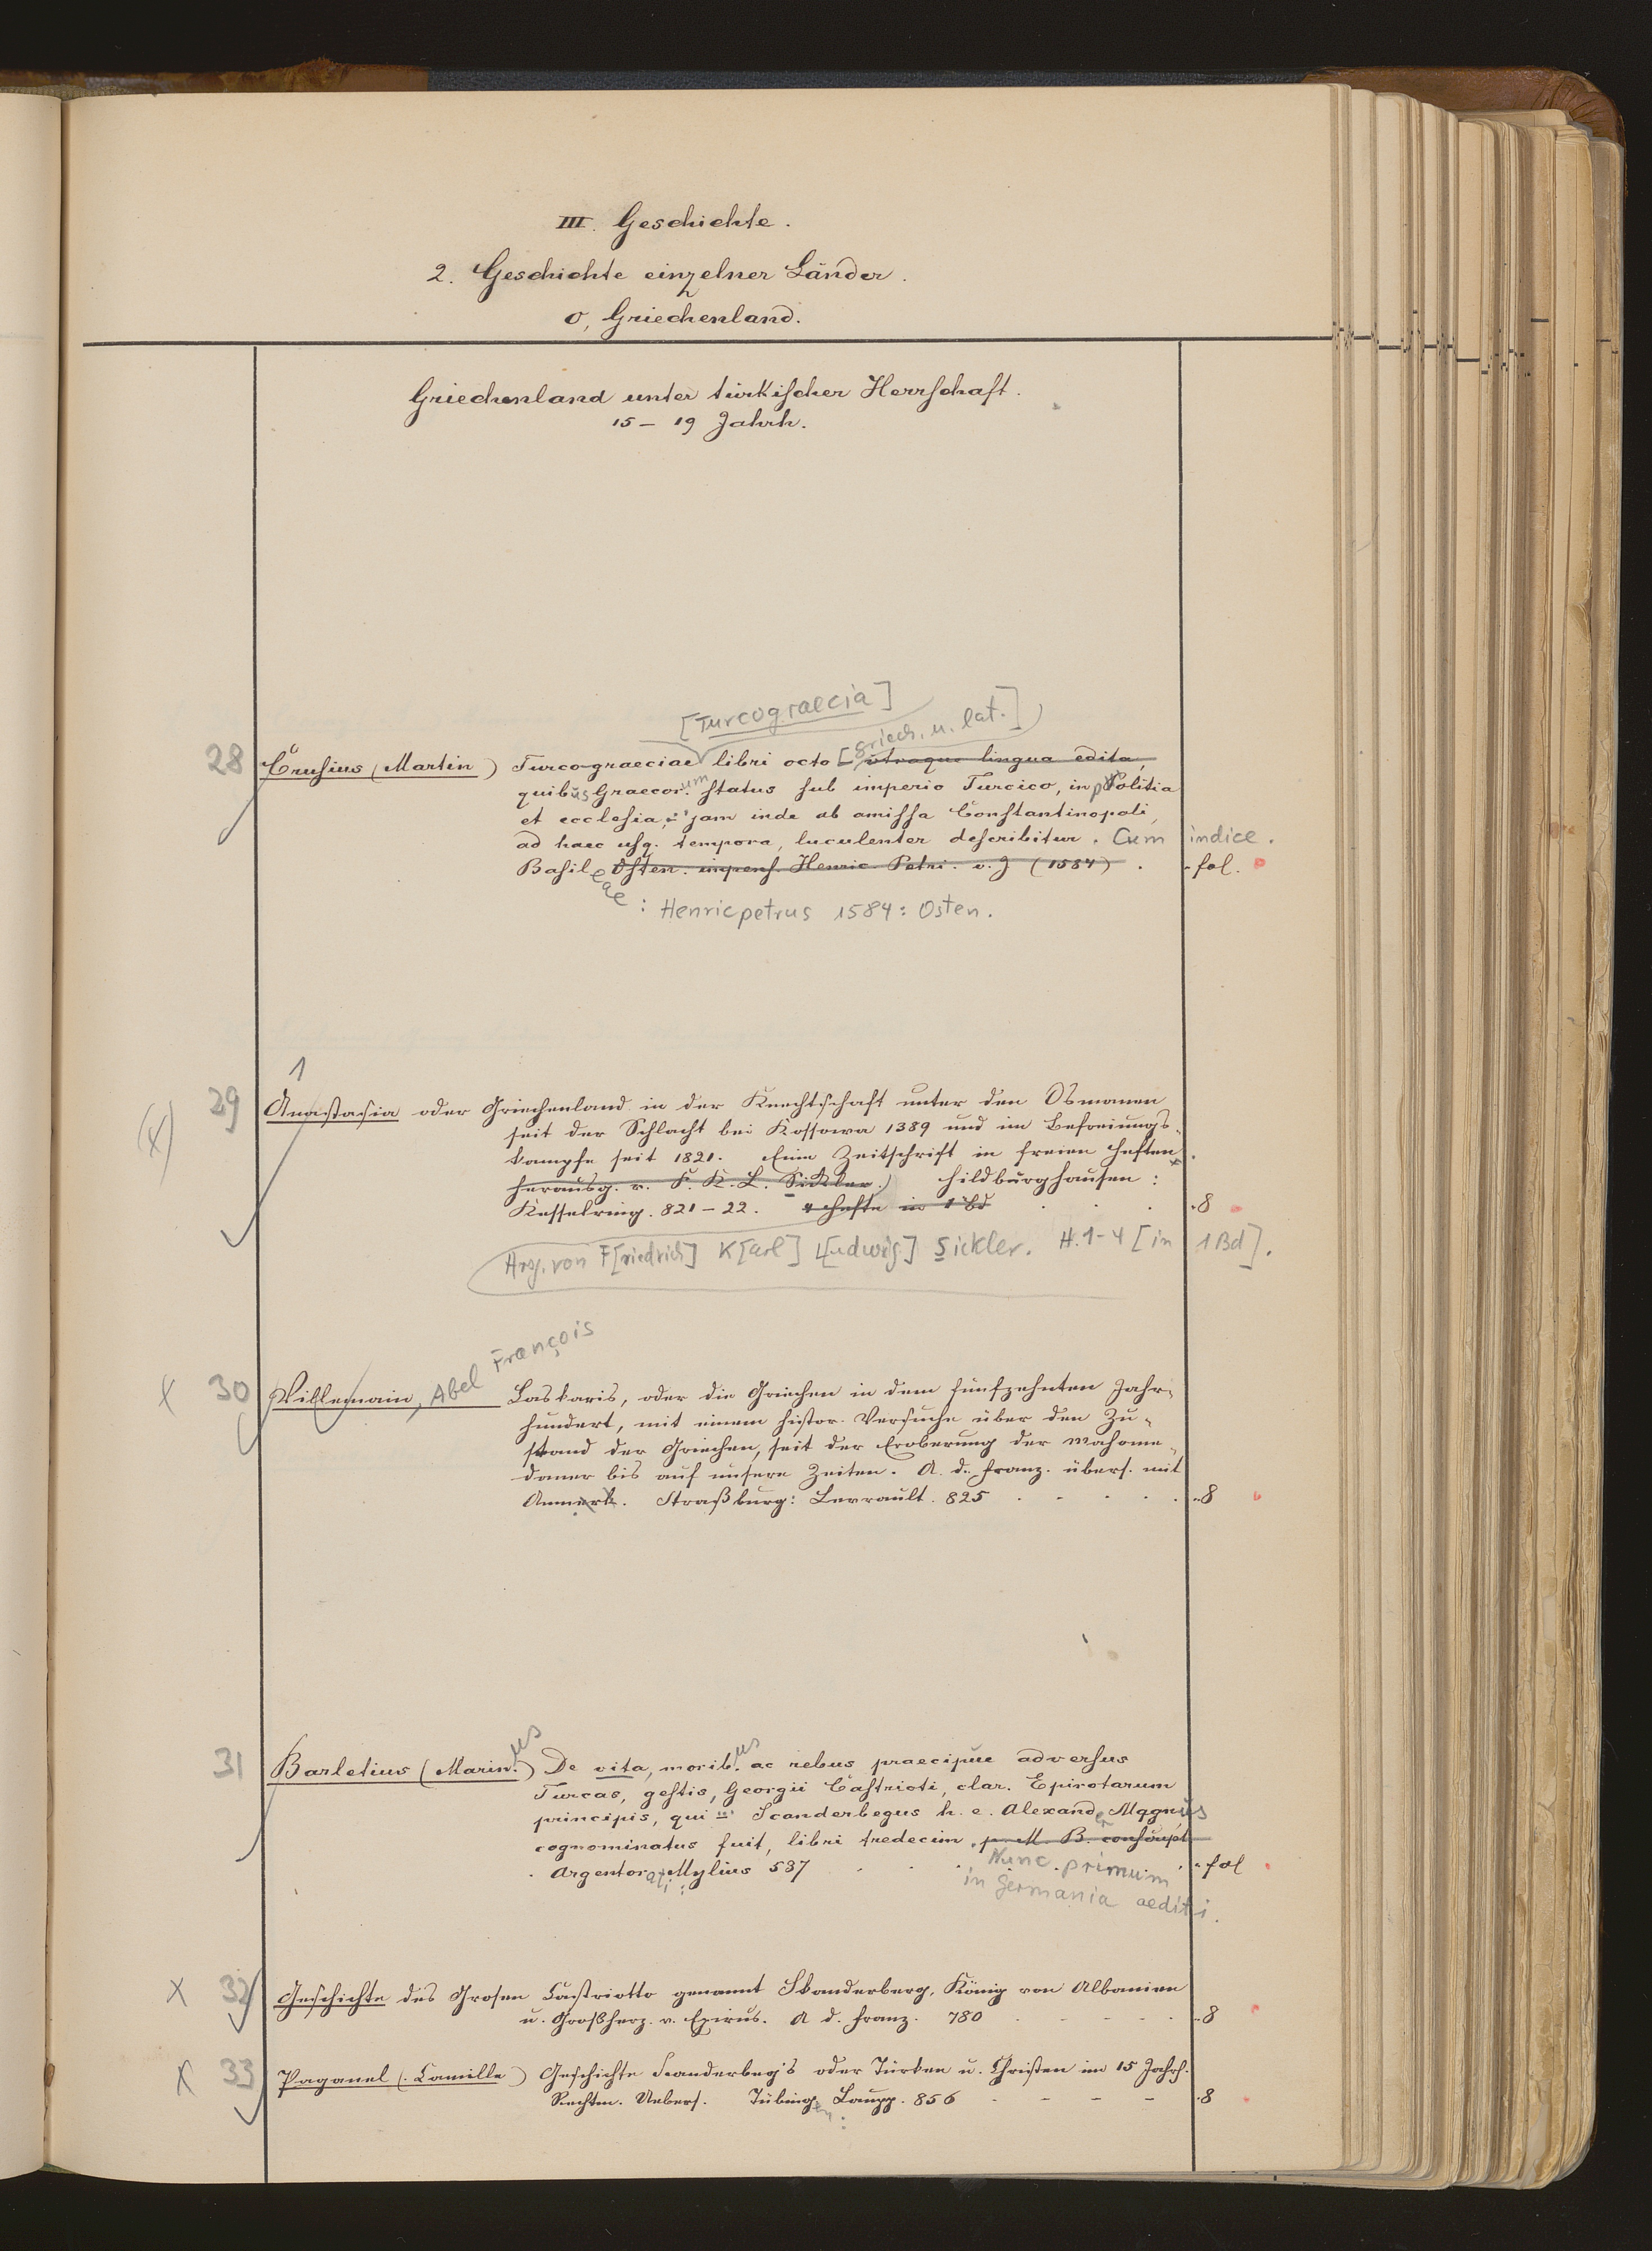 III. Geschichte.
2. Geschichte einzelner Länder.
o, Griechenland.
Griechenland unter türkischer Herrschaft.
15 – 19 Jahrh.
[Turcograecia]
[griech. u. lat.]
28 Crusius (Martin) Turco-graeciae libri octo utraque lingua edita,
quibus Graecorum status sub imperio Turcico, in Politia
et ecclesia, jam inde ab amissa Constantinopoli,
ad haec usq. tempora, luculenter describitur. Cum indice.
Basileae Osten. impens. Henric Petri. v. J (1584) . fol.
: Henricpetrus 1584: Osten.
1
(x) 29 Anastasia oder Griechenland in der Knechtschaft unter den Osmanen
seit der Schlacht bei Kossowa 1389 und im Befreiungs-
kampfe seit 1821. Eine Zeitschrift in freien Heften.
herausg. v. F. K. L. Sickler.) Hildburghausen:
Kesselring. 821–22. 4 Hefte in 1 Bd . . . 8
Hrg. von F[riedrich] K[arl] L[udwig] Sickler. H.1-4 [in 1 Bd].
x 30 Villemain, Abel François Laskaris, oder die Griechen in dem fünfzehnten Jahr-
hundert, mit einem histor. Versuche über den Zu-
stand der Griechen, seit der Eroberung der Mahome-
daner bis auf unsere Zeiten. A. d. Franz. übers. mit
Anmerk. Straßburg: Levrault. 825 . . . . . 8
31 Barletius (Marinus) De vita, moribus ac rebus praecipue adversus
Turcas, gestis, Georgii Castrioti, clar. Epirotarum
principis, qui Scanderbegus h. e. Alexander Magnus
cognominatus fuit, libri tredecim, p. M. B. conscript
Argentorati: Mylius 537 . . . fol
Nunc primum
in Germania aediti.
x 32 Geschichte des Grosen Castriotto genannt Skanderberg, König von Albanien
u. Großherz. v. Epirus. A d. Franz. 780 . . . . . 8
x 33 Paganel (Camille) Geschichte Scanderbeg's oder Türken u. Christen im 15 Jahrh.
Rechtm. Uebers. Tübingen: Laupp. 856 - - - - 8